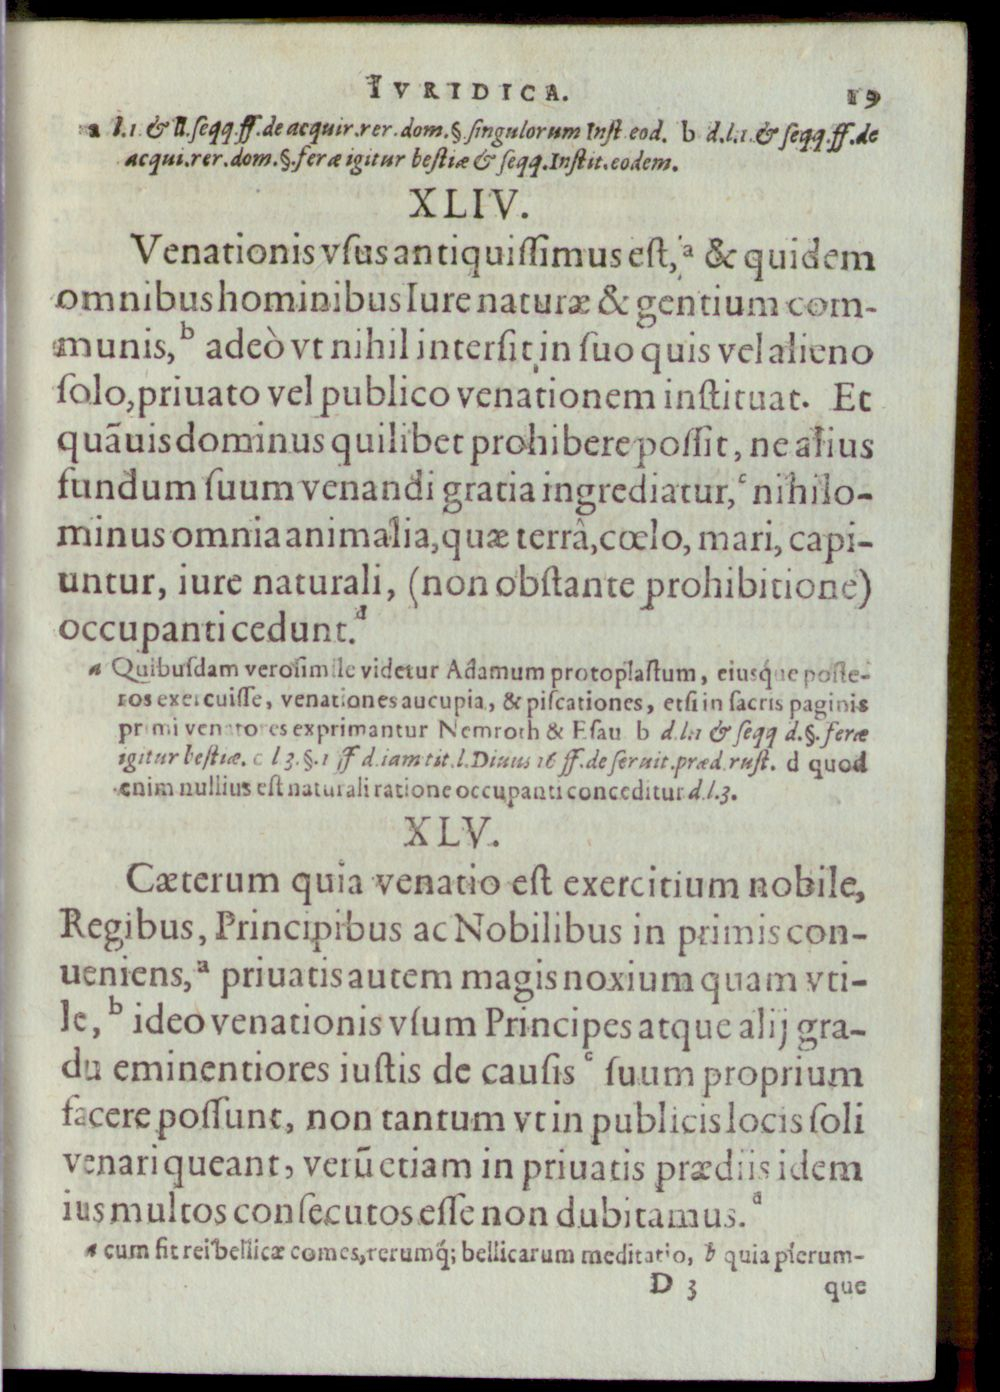 IVRIDICA. 19
a l.1 & II. ſeqq. ff. de acquir. rer. dom. §. ſingulorum Inſt. eod. b d. l. 1. & ſeqq. ff. de
acqui. rer. dom. §. feræ igitur beſtiæ & ſeqq. Inſtit. eodem.
XLIV.
Venationis vſus antiquiſſimus eſt,ᵃ & quidem
omnibus hominibus Iure naturæ & gentium com-
munis,ᵇ adeò vt nihil interſit in ſuo quis vel alieno
ſolo, priuato vel publico venationem inſtituat. Et
quãuis dominus quilibet prohibere poſſit, ne alius
fundum ſuum venandi gratia ingrediatur,ᶜ nihilo-
minus omnia animalia, quæ terrâ, cœlo, mari, capi-
untur, iure naturali, (non obſtante prohibitione)
occupanti cedunt.ᵈ
a Quibuſdam veroſimile videtur Adamum protoplaſtum, eiusq́ue poſte-
ros exercuiſſe, venationes aucupia, & piſcationes, etſi in ſacris paginis
primi venatores exprimantur Nemroth & Eſau b d. l. 1 & ſeqq d. §. feræ
igitur beſtiæ. c l 3. §. 1 ff d. iam tit. l. Diuus 16 ff. de ſeruit. præd. ruſt. d quod
enim nullius eſt naturali ratione occupanti conceditur d. l. 3.
XLV.
Cæterum quia venatio eſt exercitium nobile,
Regibus, Principibus ac Nobilibus in primis con-
ueniens,ᵃ priuatis autem magis noxium quam vti-
le,ᵇ ideo venationis vſum Principes atque alij gra-
du eminentiores iuſtis de cauſisᶜ ſuum proprium
facere poſſunt, non tantum vt in publicis locis ſoli
venari queant, verũ etiam in priuatis prædiis idem
ius multos conſecutos eſſe non dubitamus.ᵈ
a cum ſit rei bellicæ comes, rerumq́; bellicarum meditatio, b quia plerum-
D 3 que